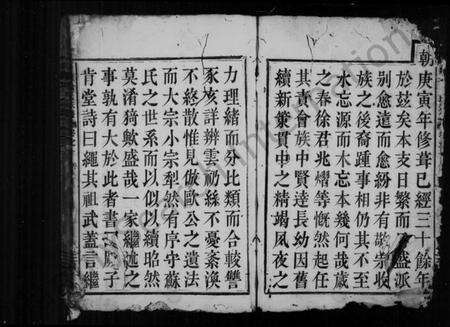 朝庚寅年修葺已經三十餘年
於玆矣本支日繁而 盛派
別愈遠而愈紛非有 宗收
族之後裔踵事相仍其不至
水忘源而木忘本幾何哉歲
之春徐君兆熠等慨然起任
其責會族中賢達長幼因舊
續新彙貫中之精竭夙夜之
力理緒而分比類而合較讐
豕亥詳辦雲礽絲不憂紊渙
不終散惟見倣歐公之遺法
而大宗小宗犁然有序守蘇
氏之世系而以似以續昭然
莫淆猗歟盛哉一家繼述之
事孰有大於此者書 子
肯堂詩曰繩其祖武蓋言繼